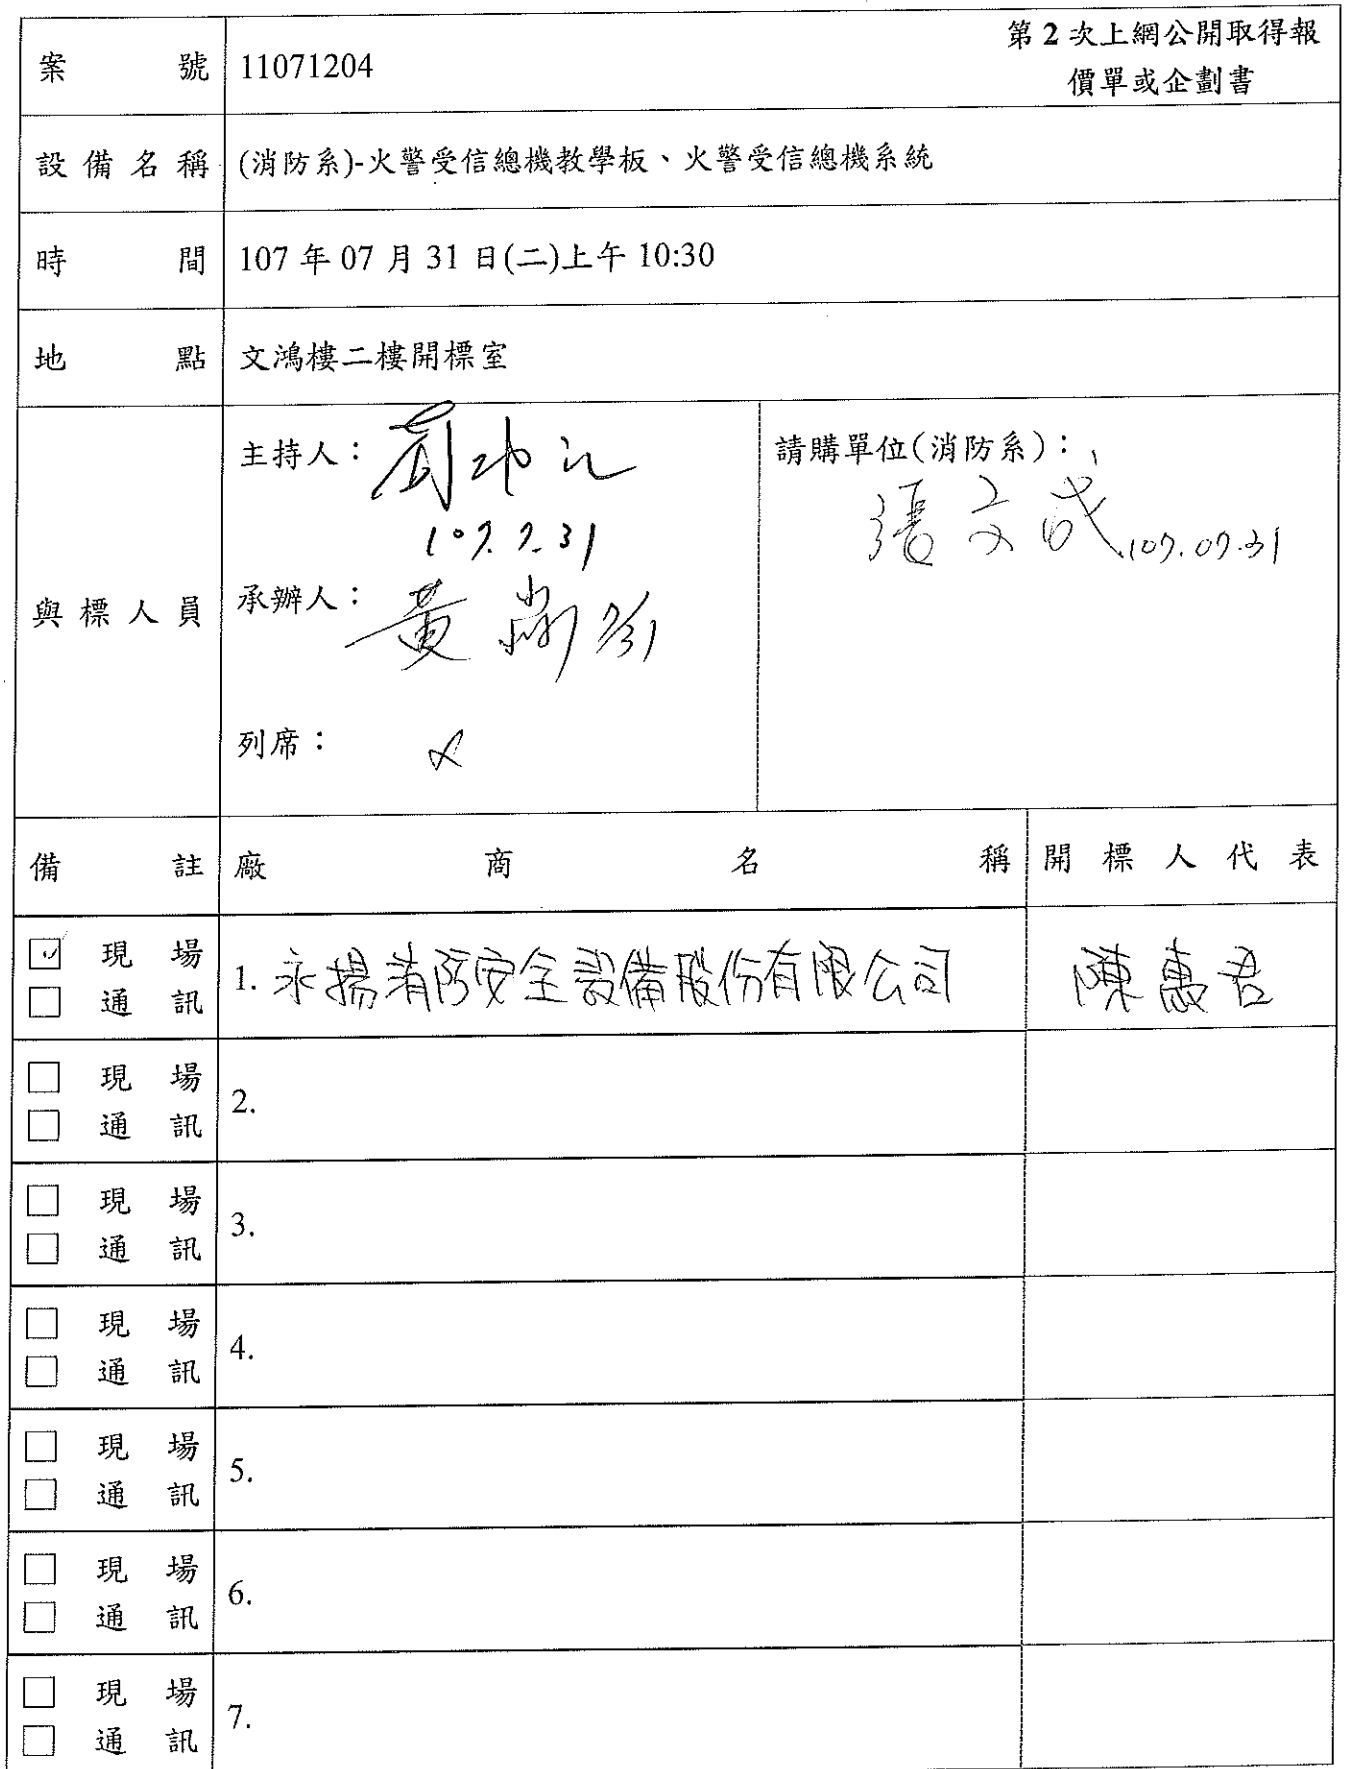 案號 11071204 第 2 次上網公開取得報
價單或企劃書
設備名稱 (消防系)-火警受信總機教學板、火警受信總機系統
時間 107 年 07 月 31 日(二)上午 10:30
地點 文鴻樓二樓開標室
與標人員
主持人：
107.7.31
承辦人： 黃 7/31
列席：
請購單位(消防系)：
張文成 107.07.31
備註 廠商名稱 開標人代表
☑ 現場
☐ 通訊
1. 永揚消防安全設備股份有限公司 陳惠君
☐ 現場
☐ 通訊
2.
☐ 現場
☐ 通訊
3.
☐ 現場
☐ 通訊
4.
☐ 現場
☐ 通訊
5.
☐ 現場
☐ 通訊
6.
☐ 現場
☐ 通訊
7.